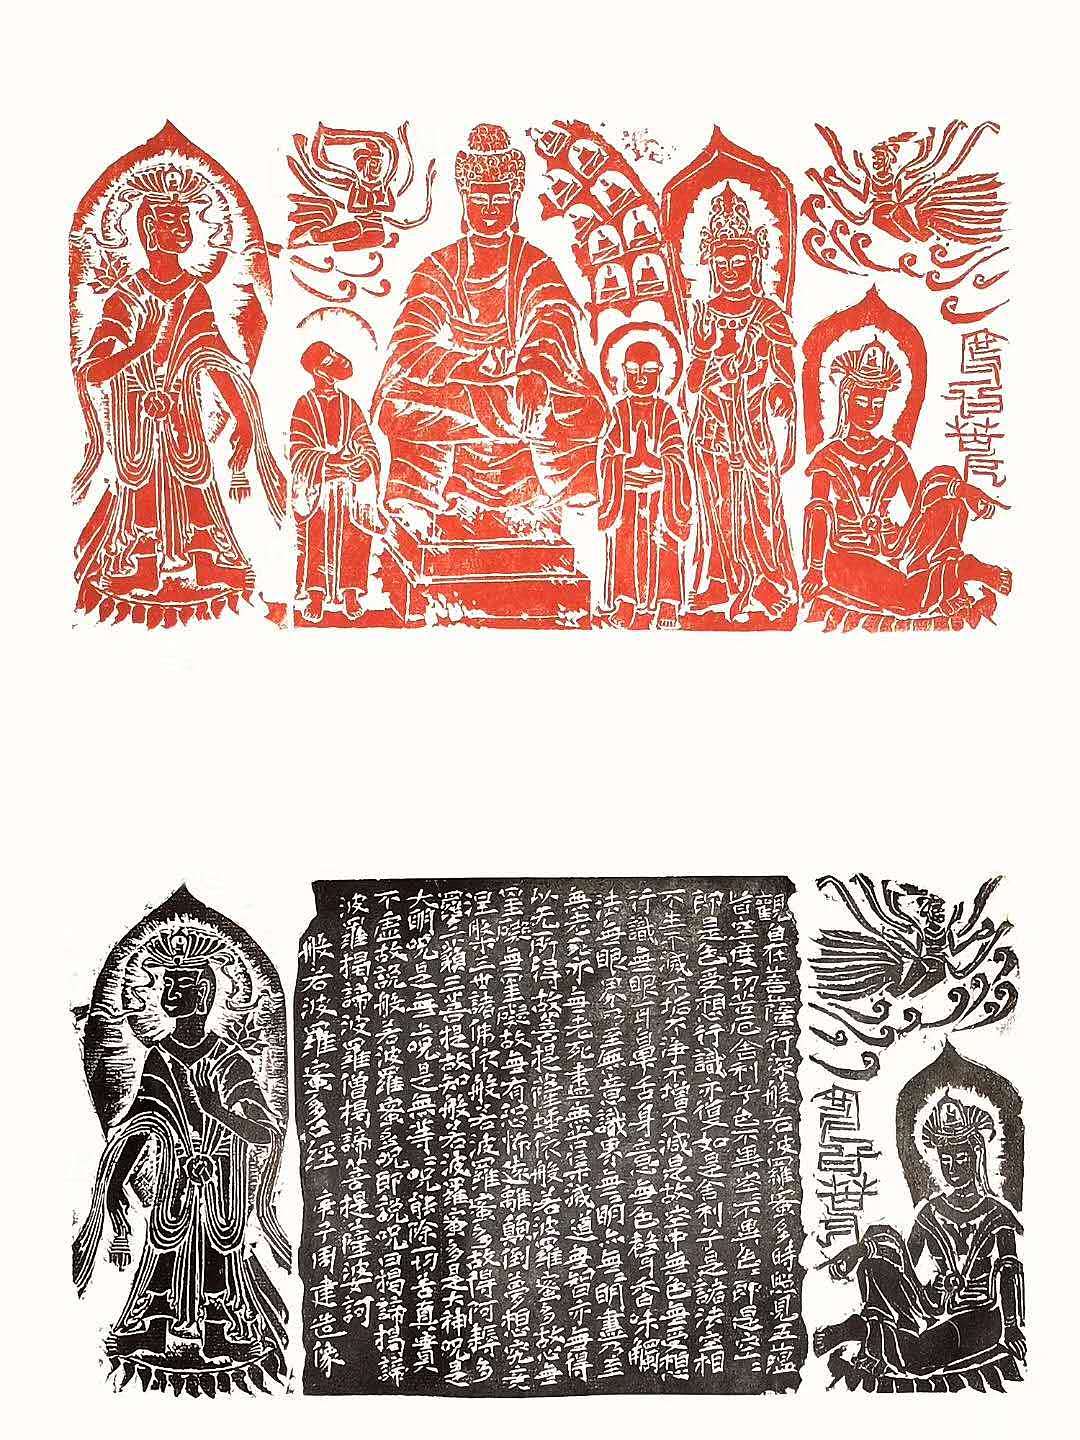 觀自在菩薩行深般若波羅蜜多時照見五蘊
皆空度一切苦厄舍利子色不異空〻不異色〻即是空〻
即是色受想行識亦復如是舍利子是諸法空相
不生不滅不垢不淨不增不減是故空中無色無受想
行識無眼耳鼻舌身意無色聲香味觸
法無眼界乃至無意識界無無明亦無無明盡乃至
無老死亦無老死盡無苦集滅道無智亦無得
以无所得故菩提薩埵依般若波羅蜜多故心無
罣礙無罣礙故無有恐怖遠離顛倒夢想究竟
涅槃三世諸佛依般若波羅蜜多故得阿耨多
羅三藐三菩提故知般若波羅蜜多是大神咒是
大明咒是無上咒是無等〻咒能除一切苦真實
不虛故說般若波羅蜜多咒即說咒曰揭諦揭諦
波羅揭諦波羅僧揭諦菩提薩婆訶
般若波羅蜜多心經 庚子周建造像